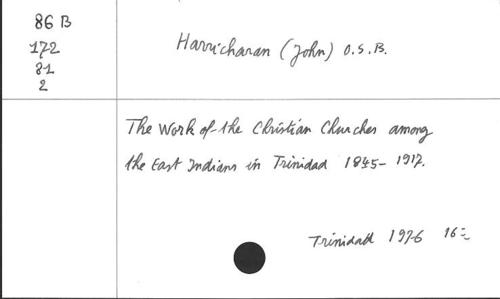 86 B
172
81
2
Harricharan (John) O.S.B.
The Work of the Christian Churches among
the East Indians in Trinidad 1845 - 1917.
Trinidad 1976 16=